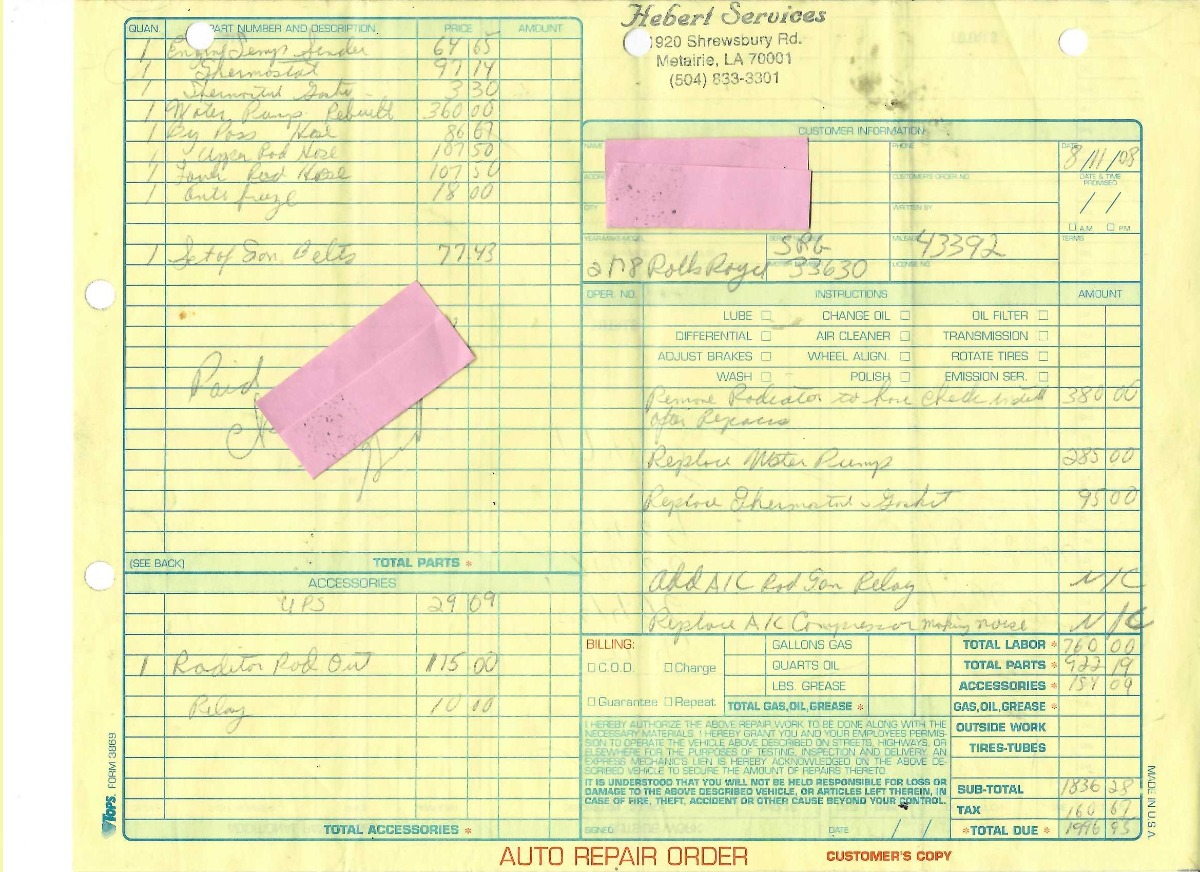 Hebert Services
1920 Shrewsbury Rd.
Metairie, LA 70001
(504) 833-3301
QUAN. PART NUMBER AND DESCRIPTION PRICE AMOUNT
1 Engine Temp Sender 64 65
1 Thermostat 97 14
1 Thermostat 3 30
1 Water Pump Rebuilt 360 00
1 By Pass Hose 86 67
1 Upper Rad Hose 107 50
1 Lower Rad Hose 107 50
1 Anti freeze 18 00
1 Set of Fan Belts 77.43
Paid
(SEE BACK) TOTAL PARTS *
ACCESSORIES
UPS 29 09
1 Raditor Rod Out 115 00
Relay 10 00
TOTAL ACCESSORIES *
TOPS FORM 3869
CUSTOMER INFORMATION
NAME PHONE DATE
8/11/08
ADDR CUSTOMER'S ORDER NO. DATE & TIME PROMISED
CITY WRITTEN BY / /
A.M. PM
YEAR-MAKE-MODEL MILEAGE TERMS
SRG 43392
LICENSE NO.
Rolls Royce 33630
OPER. NO. INSTRUCTIONS AMOUNT
LUBE CHANGE OIL OIL FILTER
DIFFERENTIAL AIR CLEANER TRANSMISSION
ADJUST BRAKES WHEEL ALIGN. ROTATE TIRES
WASH POLISH EMISSION SER.
Remove Radiator to have check install 380 00
after Repairs
Replace Water Pump 285 00
Replace Thermostat & Gasket 95 00
Add A/C Rad Fan Relay N/C
Replace A/C Compressor making noise N/C
BILLING: GALLONS GAS TOTAL LABOR * 760 00
C.O.D. Charge QUARTS OIL TOTAL PARTS * 922 19
LBS. GREASE ACCESSORIES * 154 09
Guarantee Repeat TOTAL GAS, OIL, GREASE * GAS, OIL, GREASE *
I HEREBY AUTHORIZE THE ABOVE REPAIR WORK TO BE DONE ALONG WITH THE
NECESSARY MATERIALS. I HEREBY GRANT YOU AND YOUR EMPLOYEES PERMIS-
SION TO OPERATE THE VEHICLE ABOVE DESCRIBED ON STREETS, HIGHWAYS, OR
ELSEWHERE FOR THE PURPOSES OF TESTING, INSPECTION AND DELIVERY. AN
EXPRESS MECHANIC'S LIEN IS HEREBY ACKNOWLEDGED ON THE ABOVE DE-
SCRIBED VEHICLE TO SECURE THE AMOUNT OF REPAIRS THERETO.
IT IS UNDERSTOOD THAT YOU WILL NOT BE HELD RESPONSIBLE FOR LOSS OR
DAMAGE TO THE ABOVE DESCRIBED VEHICLE, OR ARTICLES LEFT THEREIN, IN
CASE OF FIRE, THEFT, ACCIDENT OR OTHER CAUSE BEYOND YOUR CONTROL.
OUTSIDE WORK
TIRES-TUBES
SUB-TOTAL 1836 28
TAX 160 67
SIGNED DATE / / *TOTAL DUE * 1996 95
MADE IN U.S.A.
AUTO REPAIR ORDER CUSTOMER'S COPY